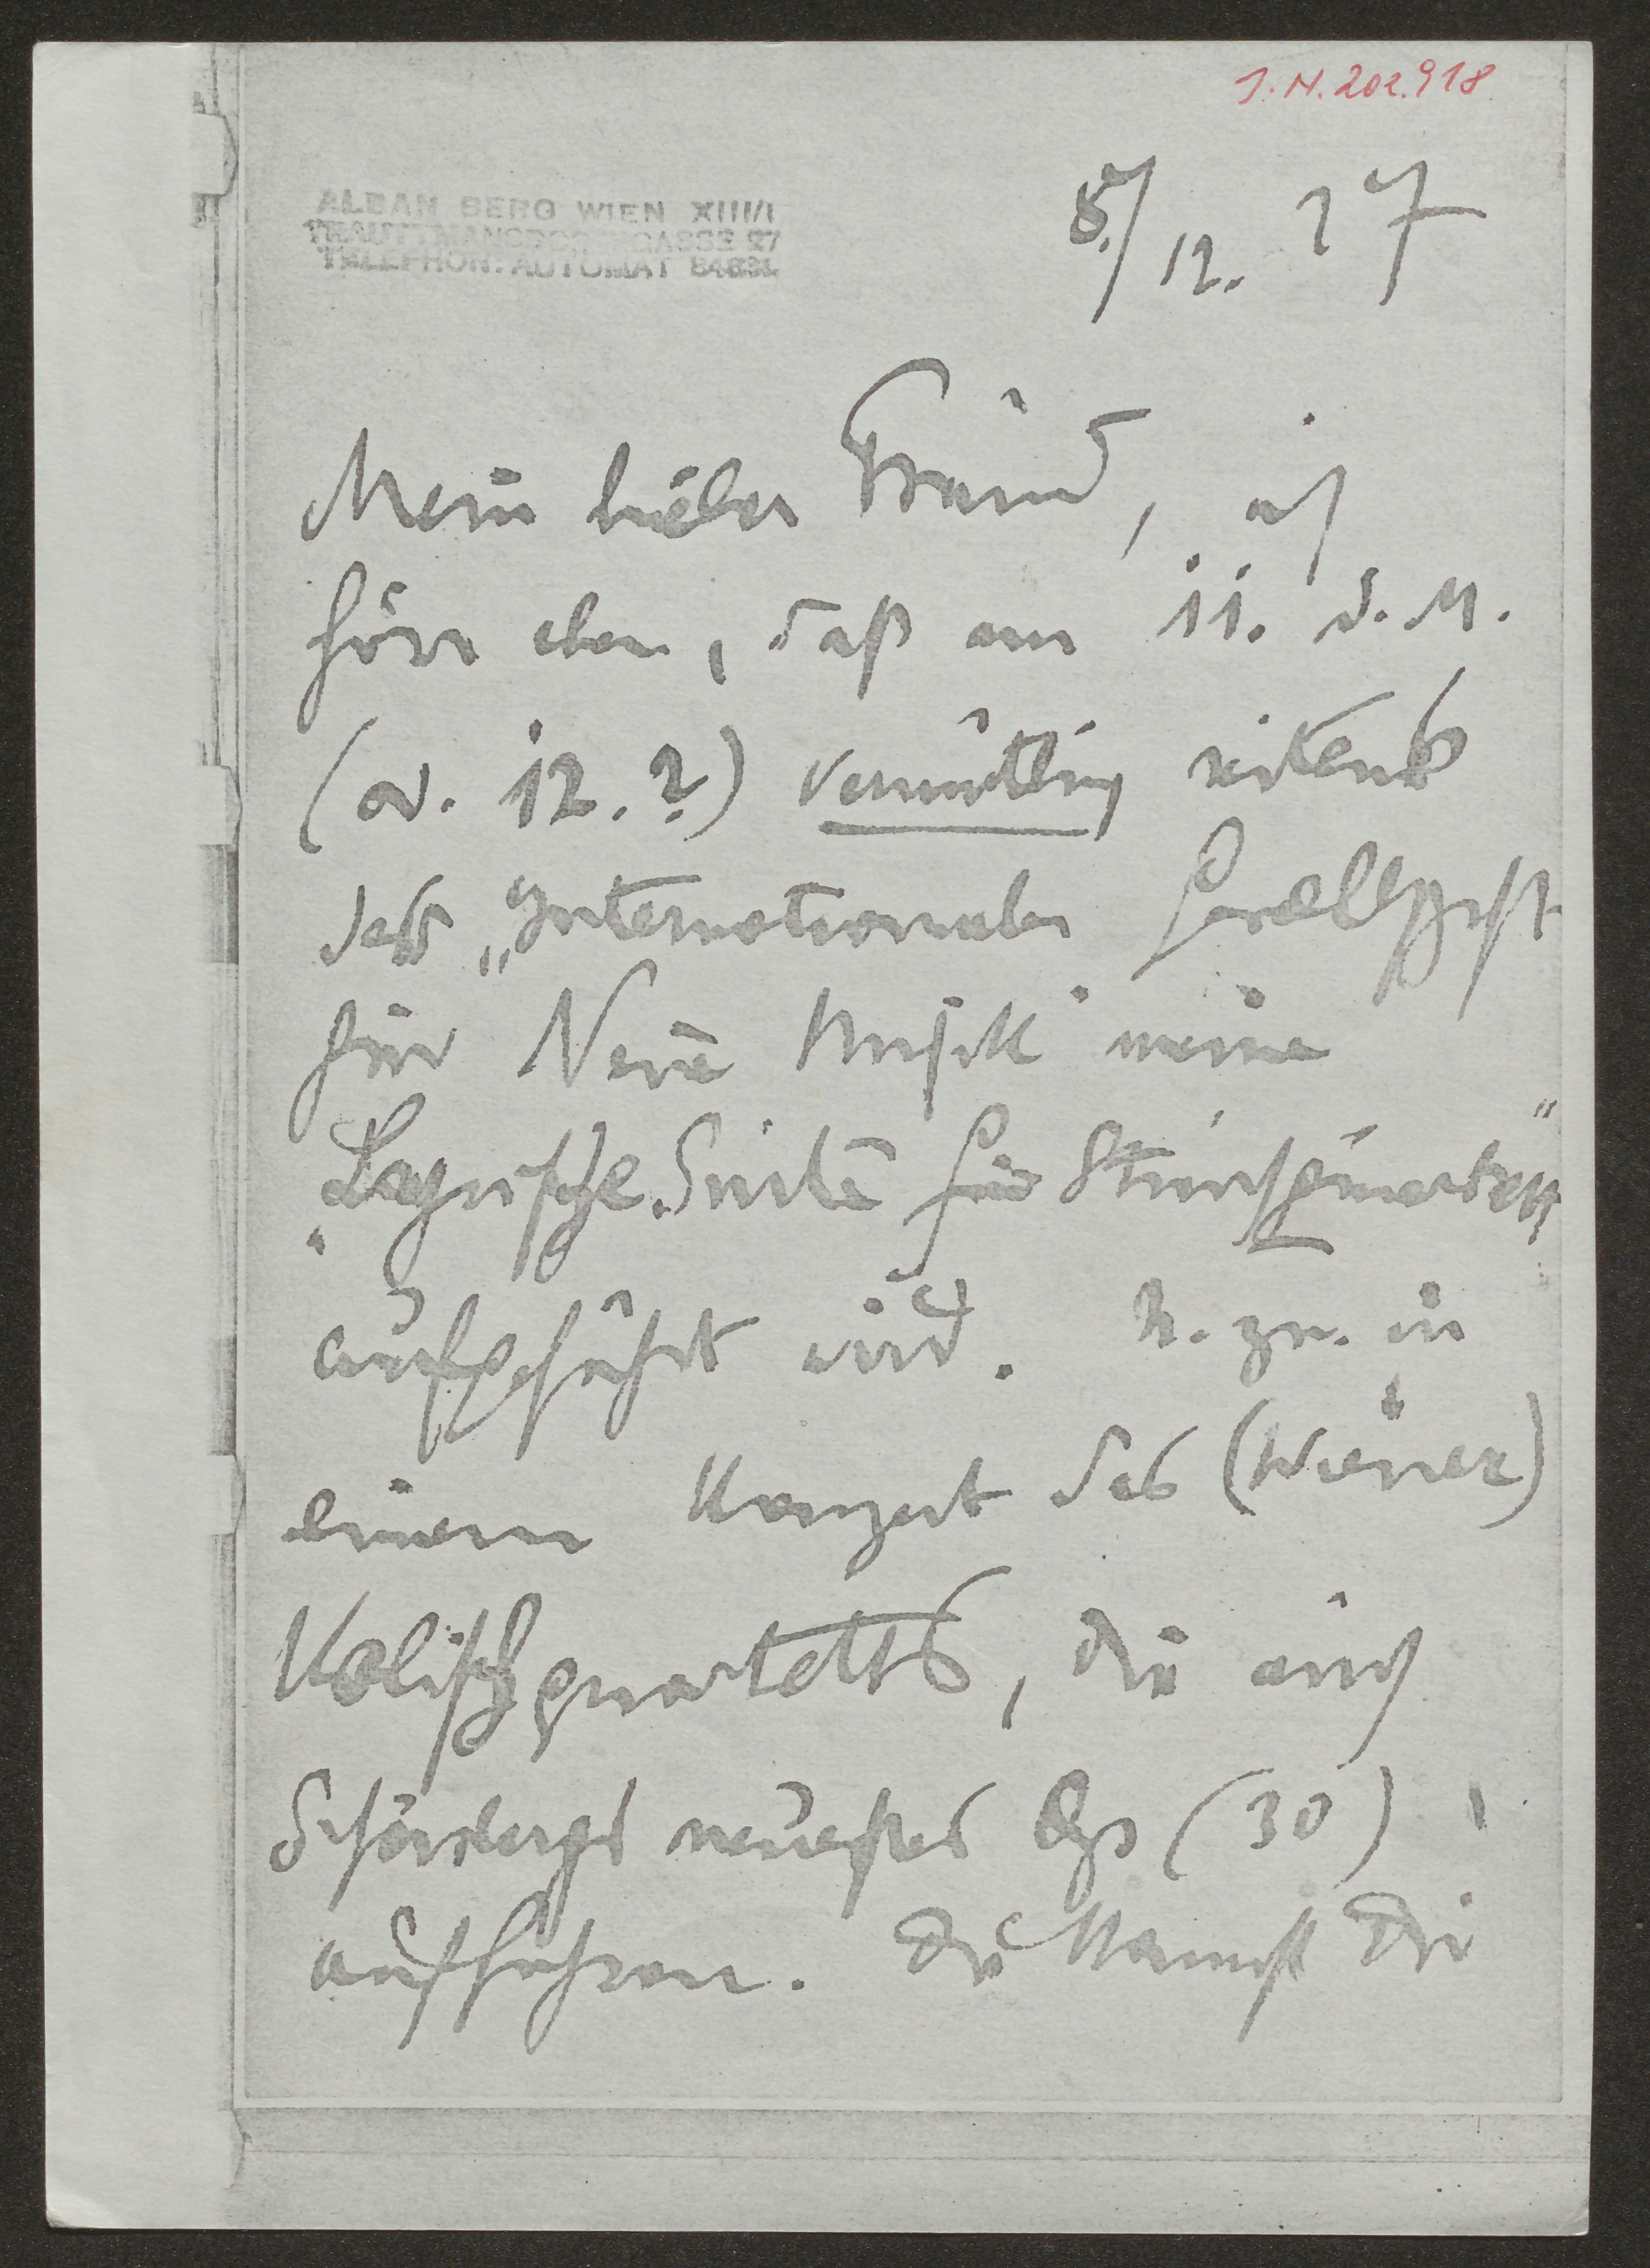 J.N.202.918
ALBAN BERG WIEN XIII/1
TRAUTTMANSDORFFGASSE 27
TELEPHON: AUTOMAT
8./12. 27
Mein lieber Freund, ich
höre eben, daß am 11. d. M.
(od. 12.?) vermutlich seitens
der „Internationalen Gesellschft
für Neue Musik" meine
„Lyrische Suite für Streichquartett"
aufgeführt wird. U. zw. in
einem Konzert des (Wiener)
Kolischquartetts, die auch
Schönbergs neuestes Qu (30)
aufführen. Die die